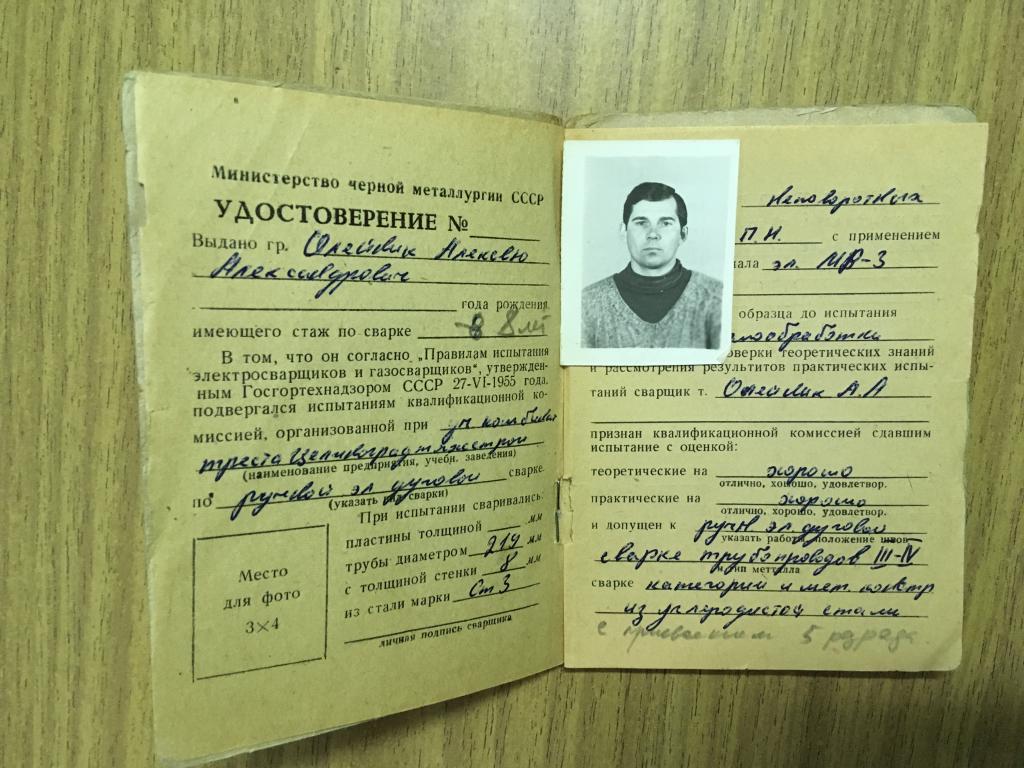 Министерство черной металлургии СССР
УДОСТОВЕРЕНИЕ №
Выдано гр. Олейник Алексею
Александрович
года рождения
имеющего стаж по сварке 8 8 лет
В том, что он согласно „Правилам испытания
электросварщиков и газосварщиков“, утвержден-
ным Госгортехнадзором СССР 27-VI-1955 года,
подвергался испытаниям квалификационной ко-
миссией, организованной при
треста Целиноградтяжстрой
(наименование предприятия, учебн. заведения)
по ручной эл дуговой сварке.
(указать вид сварки)
При испытании сваривались:
пластины толщиной мм
трубы диаметром 219 мм
с толщиной стенки 8 мм
из стали марки Ст 3
личная подпись сварщика
Место
для фото
3×4
неповоротных
П.Н. с применением
иала эл. МР-3
образца до испытания
мообработки
оверки теоретических знаний
и рассмотрения результов практических испы-
таний сварщик т. Олейник А.А
признан квалификационной комиссией сдавшим
испытание с оценкой:
теоретические на хорошо
отлично, хорошо, удовлетвор.
практические на хорошо
отлично, хорошо, удовлетвор.
и допущен к ручн. эл. дуговой
указать работы, положение швов
сварке трубопроводов III-IV
и тип метталла
сварке категории и мет. констр
из углеродистой стали
с присвоением 5 разряда.